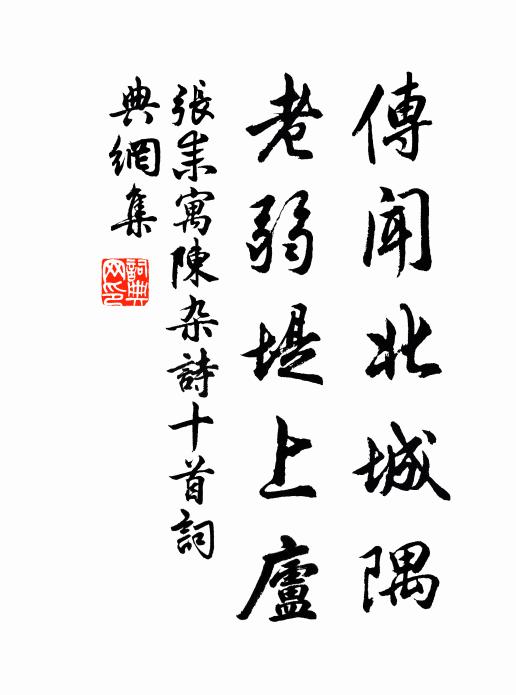 傳聞北城隅
老弱堤上廬
張耒寓陳杂詩十首詞
典網集
詞典
网印